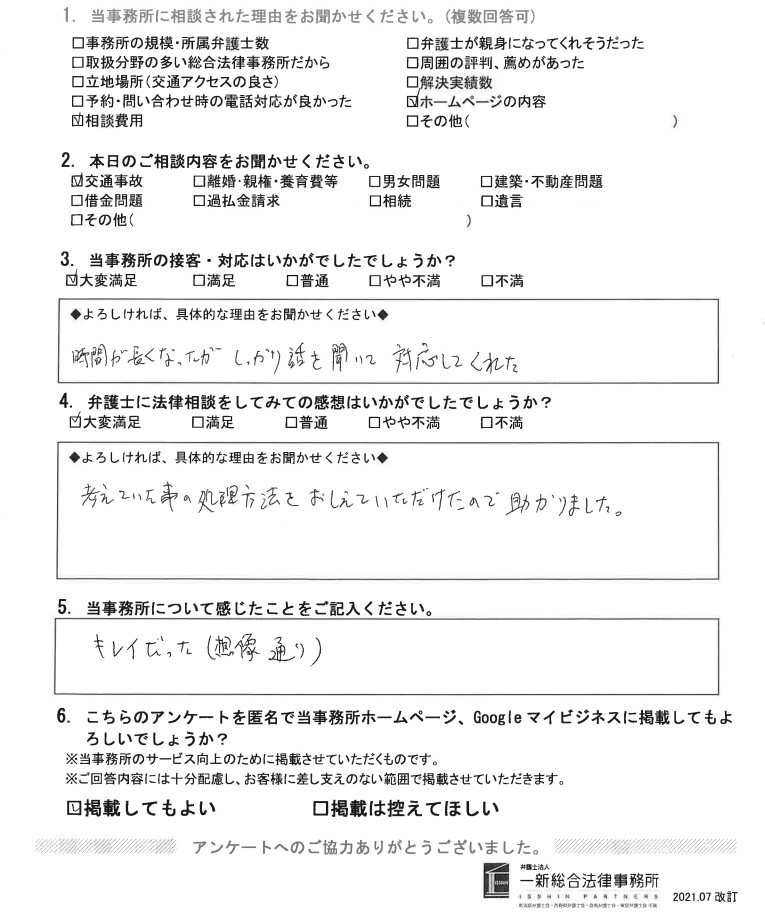 1. 当事務所に相談された理由をお聞かせください。(複数回答可)
□事務所の規模・所属弁護士数 □弁護士が親身になってくれそうだった
□取扱分野の多い総合法律事務所だから □周囲の評判、薦めがあった
□立地場所(交通アクセスの良さ) □解決実績数
□予約・問い合わせ時の電話対応が良かった ☑ホームページの内容
☑相談費用 □その他( )
2. 本日のご相談内容をお聞かせください。
☑交通事故 □離婚・親権・養育費等 □男女問題 □建築・不動産問題
□借金問題 □過払金請求 □相続 □遺言
□その他( )
3. 当事務所の接客・対応はいかがでしたでしょうか?
☑大変満足 □満足 □普通 □やや不満 □不満
◆よろしければ、具体的な理由をお聞かせください◆
時間が長くなったが しっかり話を聞いて 対応してくれた
4. 弁護士に法律相談をしてみての感想はいかがでしたでしょうか?
☑大変満足 □満足 □普通 □やや不満 □不満
◆よろしければ、具体的な理由をお聞かせください◆
考えていた事の処理方法を おしえていただけたので 助かりました。
5. 当事務所について感じたことをご記入ください。
キレイだった (想像通り)
6. こちらのアンケートを匿名で当事務所ホームページ、Google マイビジネスに掲載してもよ
ろしいでしょうか?
※当事務所のサービス向上のために掲載させていただくものです。
※ご回答内容には十分配慮し、お客様に差し支えのない範囲で掲載させていただきます。
☑掲載してもよい □掲載は控えてほしい
アンケートへのご協力ありがとうございました。
弁護士法人
一新総合法律事務所
ISSHIN
ISSHIN PARTNERS
2021.07 改訂